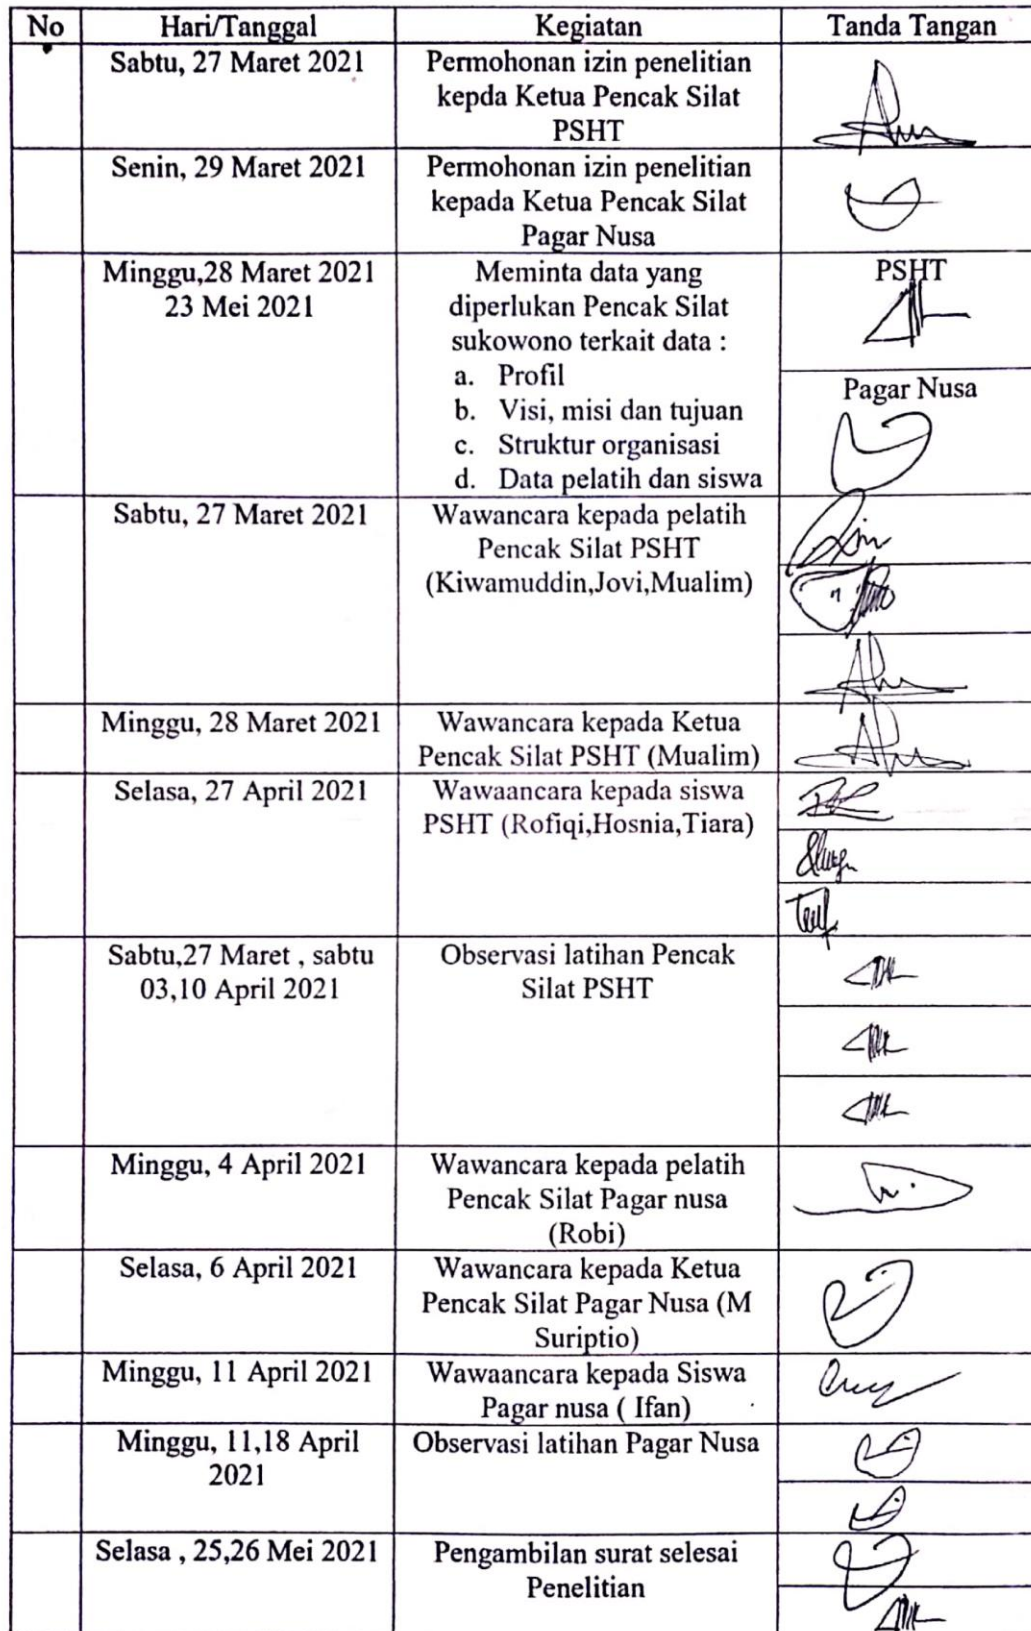 No Hari/Tanggal Kegiatan Tanda Tangan
Sabtu, 27 Maret 2021 Permohonan izin penelitian
kepda Ketua Pencak Silat
PSHT
Senin, 29 Maret 2021 Permohonan izin penelitian
kepada Ketua Pencak Silat
Pagar Nusa
Minggu,28 Maret 2021 Meminta data yang PSHT
23 Mei 2021 diperlukan Pencak Silat
sukowono terkait data :
a. Profil Pagar Nusa
b. Visi, misi dan tujuan
c. Struktur organisasi
d. Data pelatih dan siswa
Sabtu, 27 Maret 2021 Wawancara kepada pelatih
Pencak Silat PSHT
(Kiwamuddin,Jovi,Mualim)
Minggu, 28 Maret 2021 Wawancara kepada Ketua
Pencak Silat PSHT (Mualim)
Selasa, 27 April 2021 Wawaancara kepada siswa
PSHT (Rofiqi,Hosnia,Tiara)
Sabtu,27 Maret , sabtu Observasi latihan Pencak
03,10 April 2021 Silat PSHT
Minggu, 4 April 2021 Wawancara kepada pelatih
Pencak Silat Pagar nusa
(Robi)
Selasa, 6 April 2021 Wawancara kepada Ketua
Pencak Silat Pagar Nusa (M
Suriptio)
Minggu, 11 April 2021 Wawaancara kepada Siswa
Pagar nusa ( Ifan)
Minggu, 11,18 April Observasi latihan Pagar Nusa
2021
Selasa , 25,26 Mei 2021 Pengambilan surat selesai
Penelitian